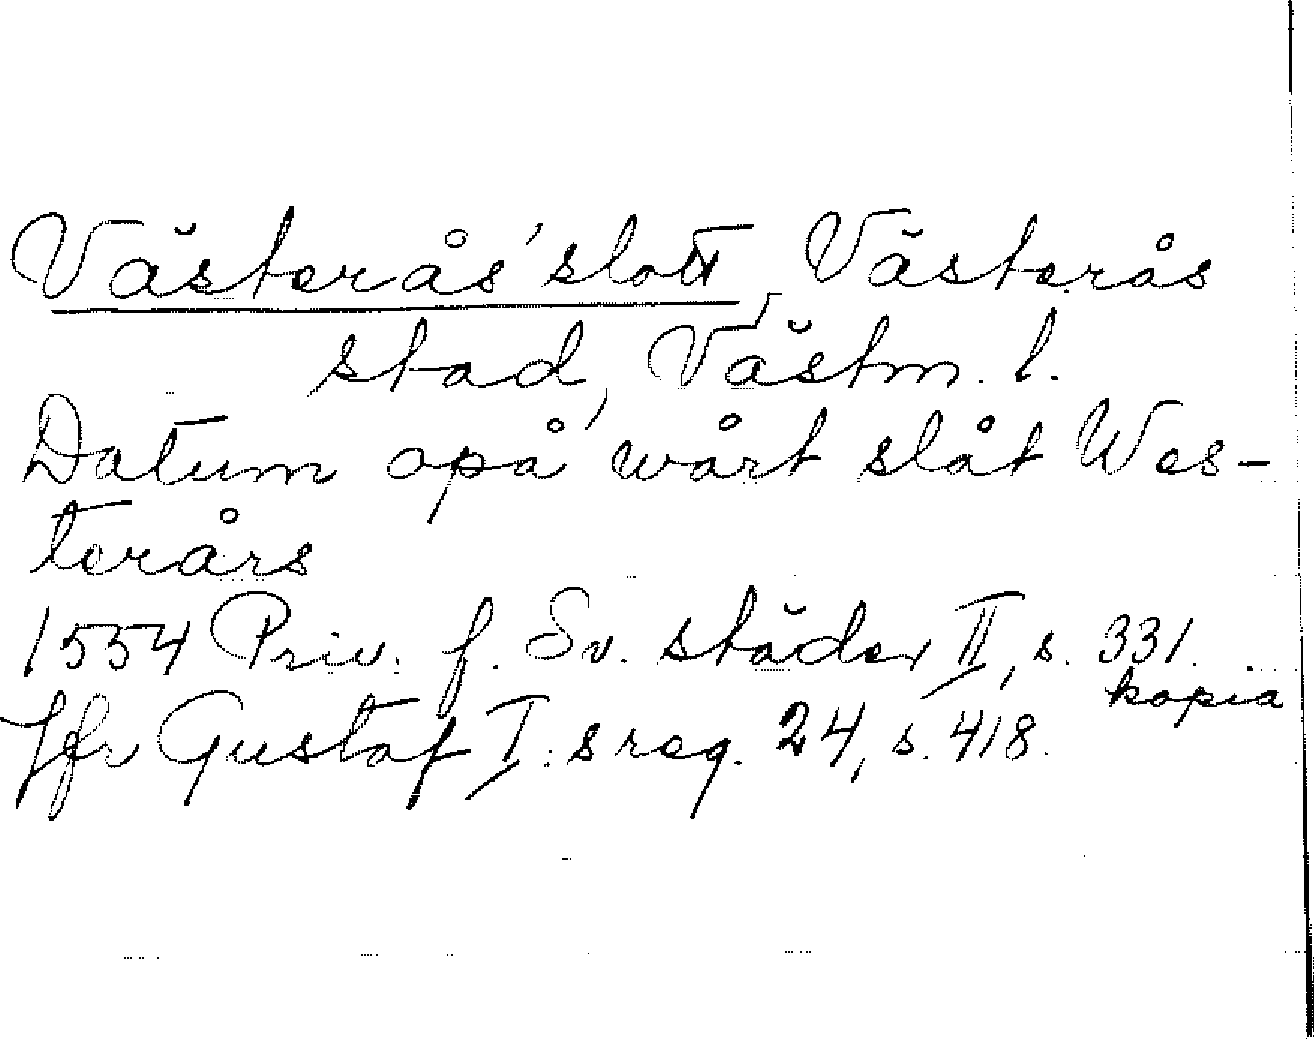 Västerås' slott, Västerås
stad, Västm. l.
Datum opå wårt slåt Wes-
terårs
1554 Priv. f. Sv. städer II, s. 331.
kopia
Jfr Gustaf I:s reg. 24, s. 418.